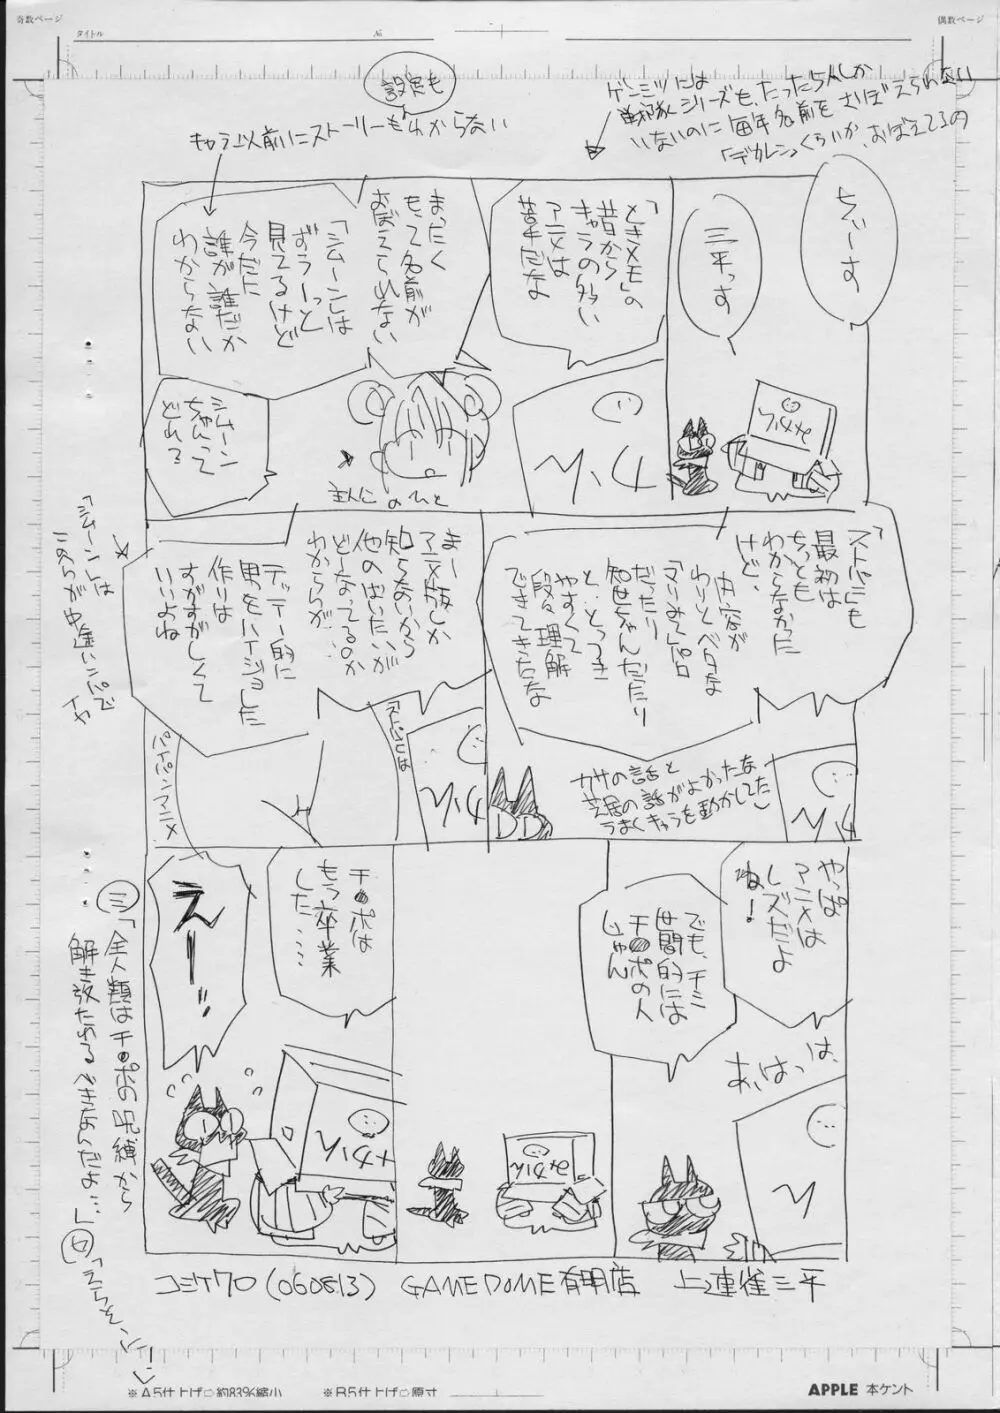 奇数ページ
偶数ページ
タイトル
№
設定も
キャラ以前にストーリーもわからない
ゲンミツには
戦隊シリーズも、たった5人しか
いないのに毎年名前をさっぱおぼえられない
「デカレン」くらいか、おぼえてるの
ちぃーす
三平っす
「ときメモ」の
昔から
キャラの多い
アニメは
苦手だな
まったく
もって名前が
おぼえられない
「シムーン」は
ずうーっと
見てるけど
今だに
誰が誰だか
わからない
シムーン
ちゃんって
どれ?
主人公のひと
「ストパニ」も
最初は
ちっとも
わからなかった
けど、
内容が
わりとベタな
「マリみて」パロ
だったり
知世ちゃんだったり
と…とっつき
やすくて
段々理解
できてきたな
カサの話と
芝居の話がよかったな
うまくキャラを動かしてた
まー
アニメ版しか
知らないから
他のはいたいが
どーなってるのか
わからんが…
テッテー的に
男をハイジョした
作りは
すがすがしくて
いいよね
「シムーン」は
このへんが中途ハンパで
イヤ
「ストパニ」は
パイパンアニメ
やっぱ
アニメは
レズだよ
ね!
でも、チミ
世間的には
チ●ポの人
じゃん
あ、はっは、
チ●ポは
もう卒業
した……
えー!!
三「全人類はチ●ポの呪縛から
解き放たれるべきなんだよ…」
コミケ70(060813) GAME DOME有明店 上連雀三平
※A5仕上げ□約83%縮小
※B5仕上げ□原寸
APPLE 本ケント